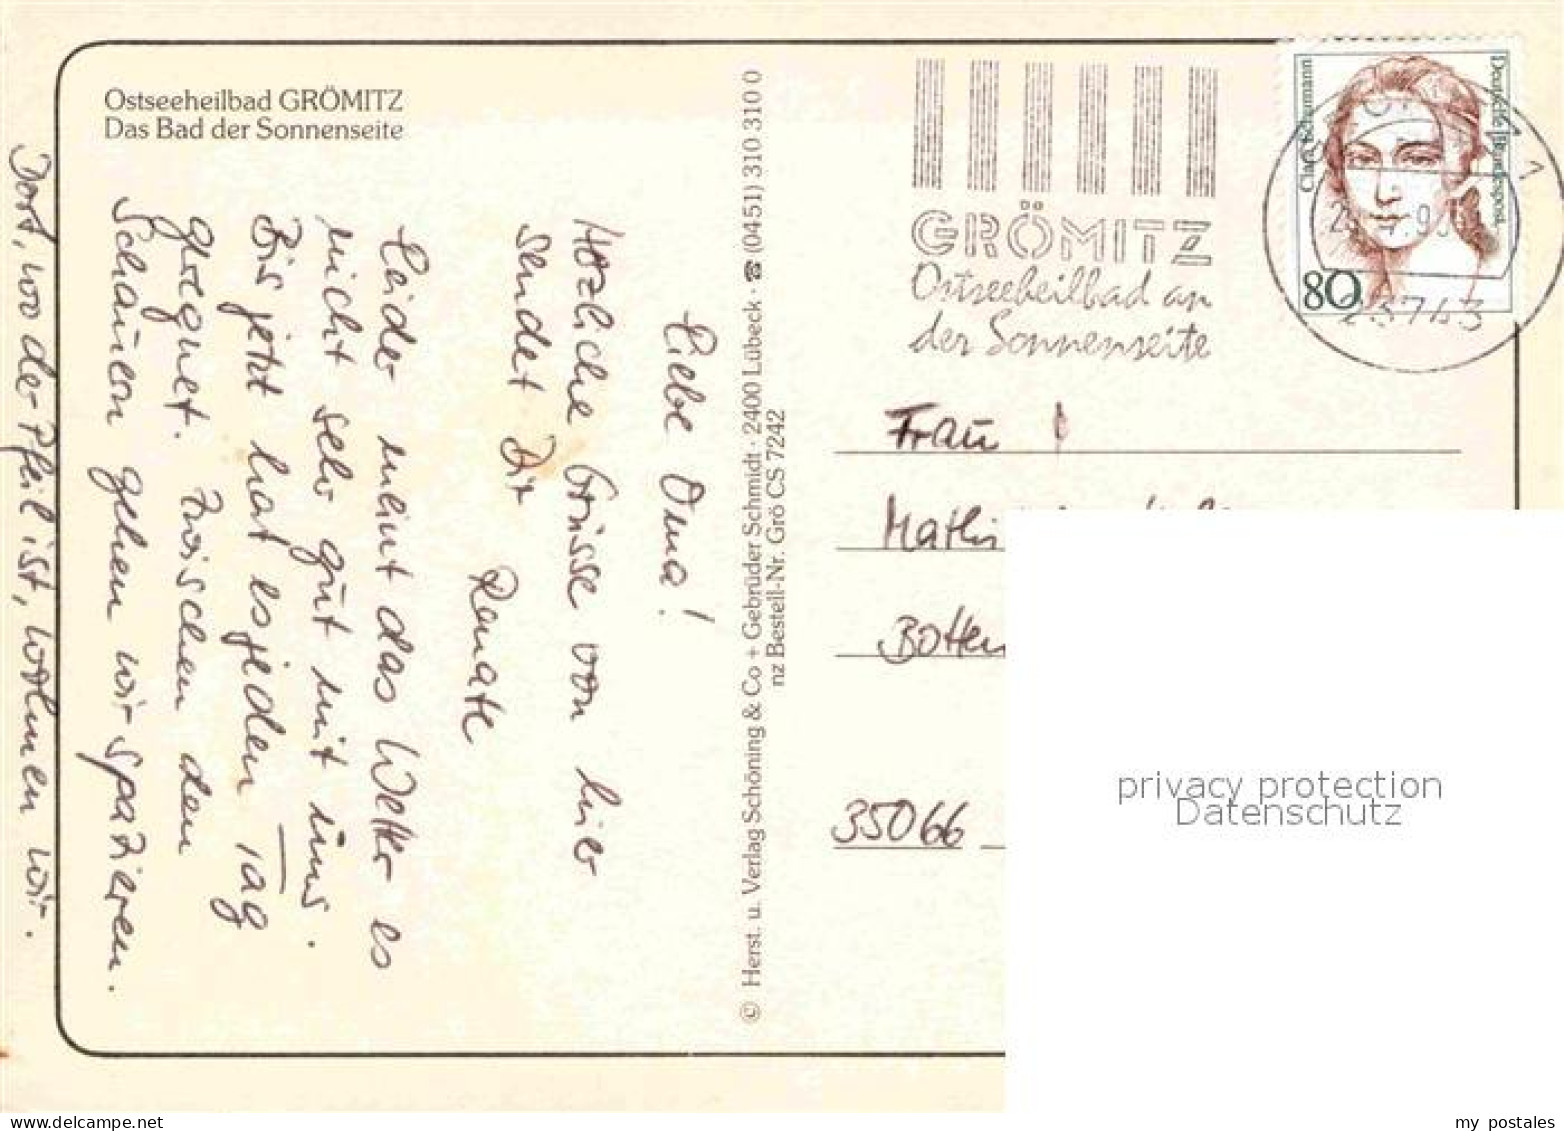 Ostseeheilbad GRÖMITZ
Das Bad der Sonnenseite
Liebe Oma!
Herzliche Grüsse von hier
sendet Dir
Renate
Leider meint das Wetter es
nicht sehr gut mit uns.
Bis jetzt hat es jeden Tag
geregnet. Zwischen den
Schauern gehen wir spazieren.
Dort, wo der Pfeil ist, wohnen wir.
© Herst. u. Verlag Schöning & Co + Gebrüder Schmidt · 2400 Lübeck · ☎ (0451) 310 310 0
nz Bestell-Nr. Grö CS 7242
GRÖMITZ
Ostseeheilbad an
der Sonnenseite
Clara Schumann
Deutsche Bundespost
80
23743
1
Frau
Mathi
Botten
35066
privacy protection
Datenschutz
delcampe.net
my_postales